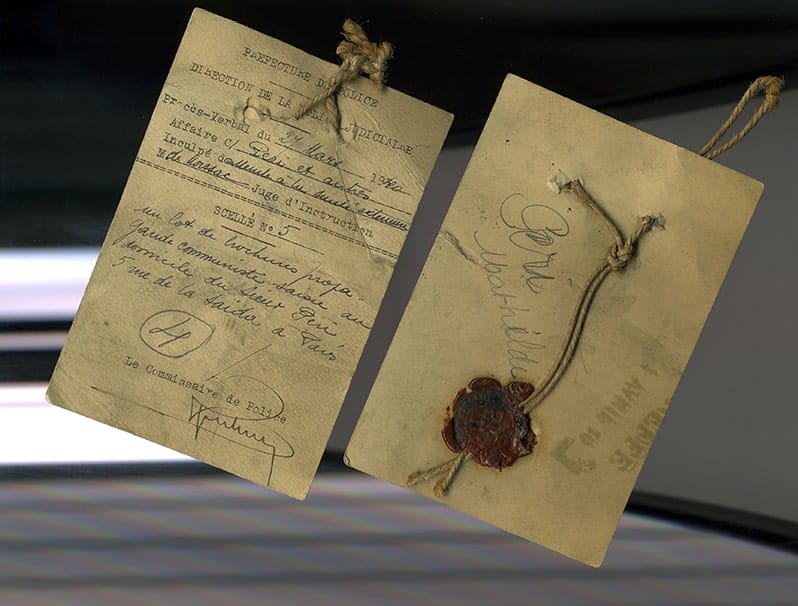 PREFECTURE DE POLICE
DIRECTION DE LA POLICE JUDICIAIRE
Procès-Verbal du 27 Mars 1940
Affaire c/ Péri et autres
Inculpé de
M de Moissac Juge d'Instruction
SCELLÉ N° 5
un lot de brochures propa-
gande communiste saisie au
domicile du sieur Péri
5 rue de la Saïda à Paris
4
Le Commissaire de Police
Péri
Mathilde
AVRIL